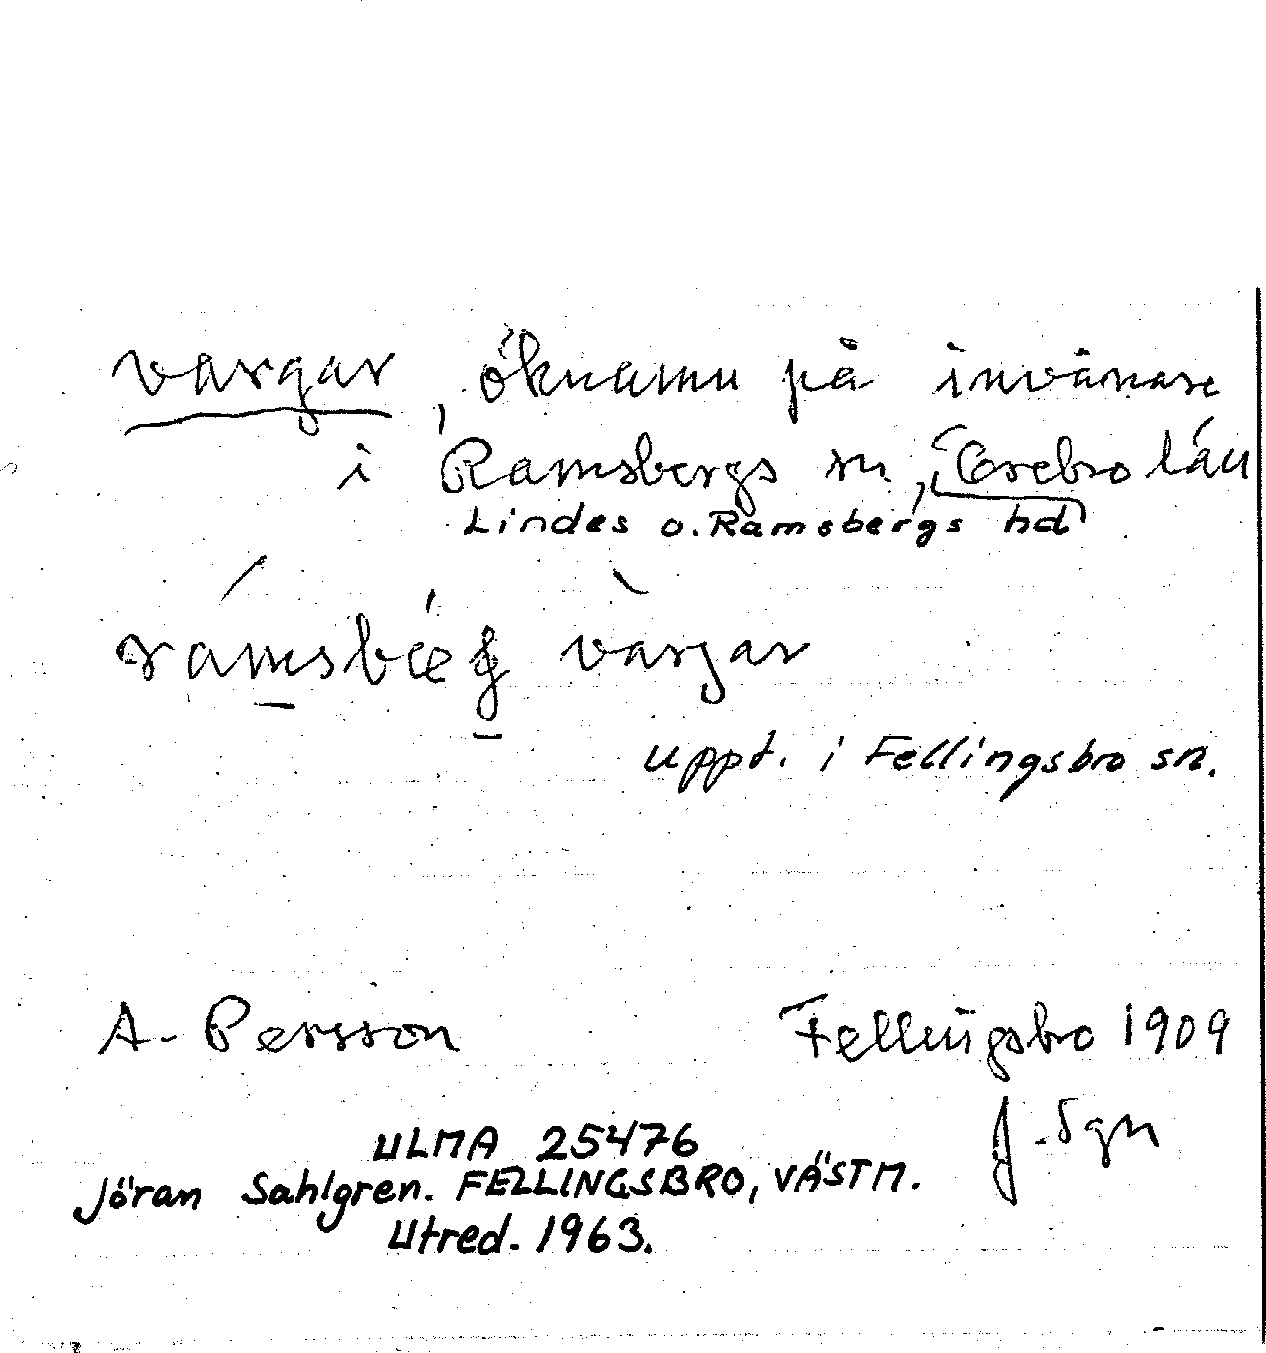 vargar, öknamn på invånare
i Ramsbergs sn, Örebro län
Lindes o. Ramsbergs hd
vargar
uppt. i Fellingsbro sn.
A. Persson Fellingsbro 1909
J. Sgn
ULMA 25476
Jöran Sahlgren. FELLINGSBRO, VÄSTM.
Utred. 1963.